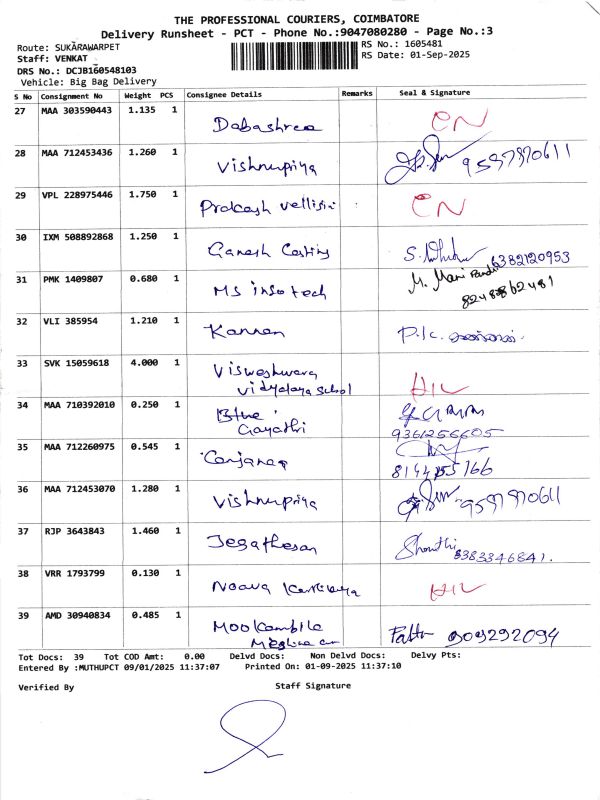 THE PROFESSIONAL COURIERS, COIMBATORE
Delivery Runsheet - PCT - Phone No.:9047080280 - Page No.:3
Route: SUKARAWARPET
RS No.: 1605481
Staff: VENKAT
RS Date: 01-Sep-2025
DRS No.: DCJB160548103
Vehicle: Big Bag Delivery
S No Consignment No Weight PCS Consignee Details Remarks Seal & Signature
27 MAA 303590443 1.135 1 Dabashree CN
28 MAA 712453436 1.260 1 Vishnupriya 9597970611
29 VPL 228975446 1.750 1 Prakash Vellisri CN
30 IXM 508892868 1.250 1 Ganesh Casting 6382120953
31 PMK 1409807 0.680 1 MS infotech M. Mani
32 VLI 385954 1.210 1 Kannan P.K.
33 SVK 15059618 4.000 1 Visweshwara
vidyalaya school HIL
34 MAA 710392010 0.250 1 Blue
Gayathri 9361256605
35 MAA 712260975 0.545 1
36 MAA 712453070 1.280 1 Vishnupriya 9597970611
37 RJP 3643843 1.460 1 Jegatheesan Shanthi 8383346841.
38 VRR 1793799 0.130 1 HIL
39 AMD 30940834 0.485 1 Mookambike
909292094
Tot Docs: 39 Tot COD Amt: 0.00 Delvd Docs: Non Delvd Docs: Delvy Pts:
Entered By :MUTHUPCT 09/01/2025 11:37:07 Printed On: 01-09-2025 11:37:10
Verified By Staff Signature